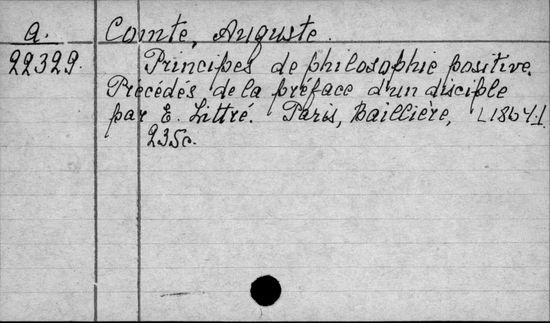 a. Comte, Auguste.
22329. Principes de philosophie positive.
Précédés de la préface d'un disciple
par E. Littré. Paris, Baillière,
235c.